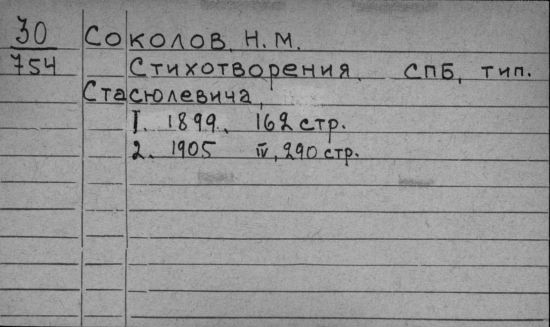 30 Соколов, Н. М.
754 Стихотворения. СПБ, тип.
Стасюлевича,
1. 1899. 162 стр.
2. 1905 IV, 290 стр.